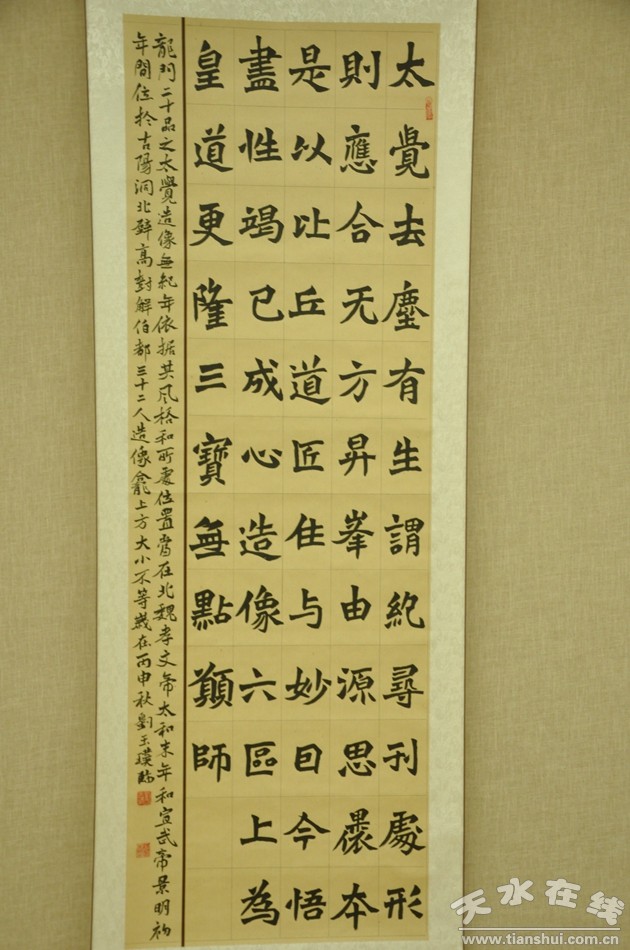 太覺去塵有生謂紀尋刊處形
則應合无方昇峯由源思儂本
是以比丘道匠住与妙因今悟
盡性竭已成心造像六區上為
皇道更隆三寶無點顛師
龍門二十品之太覺造像無紀年依据其風格和所處位置當在北魏孝文帝太和末年和宣武帝景明初
年間位於古陽洞北壁高對解伯都三十二人造像龕上方大小不等歲在丙申秋劉玉璞臨
天水在线
www.tianshui.com.cn